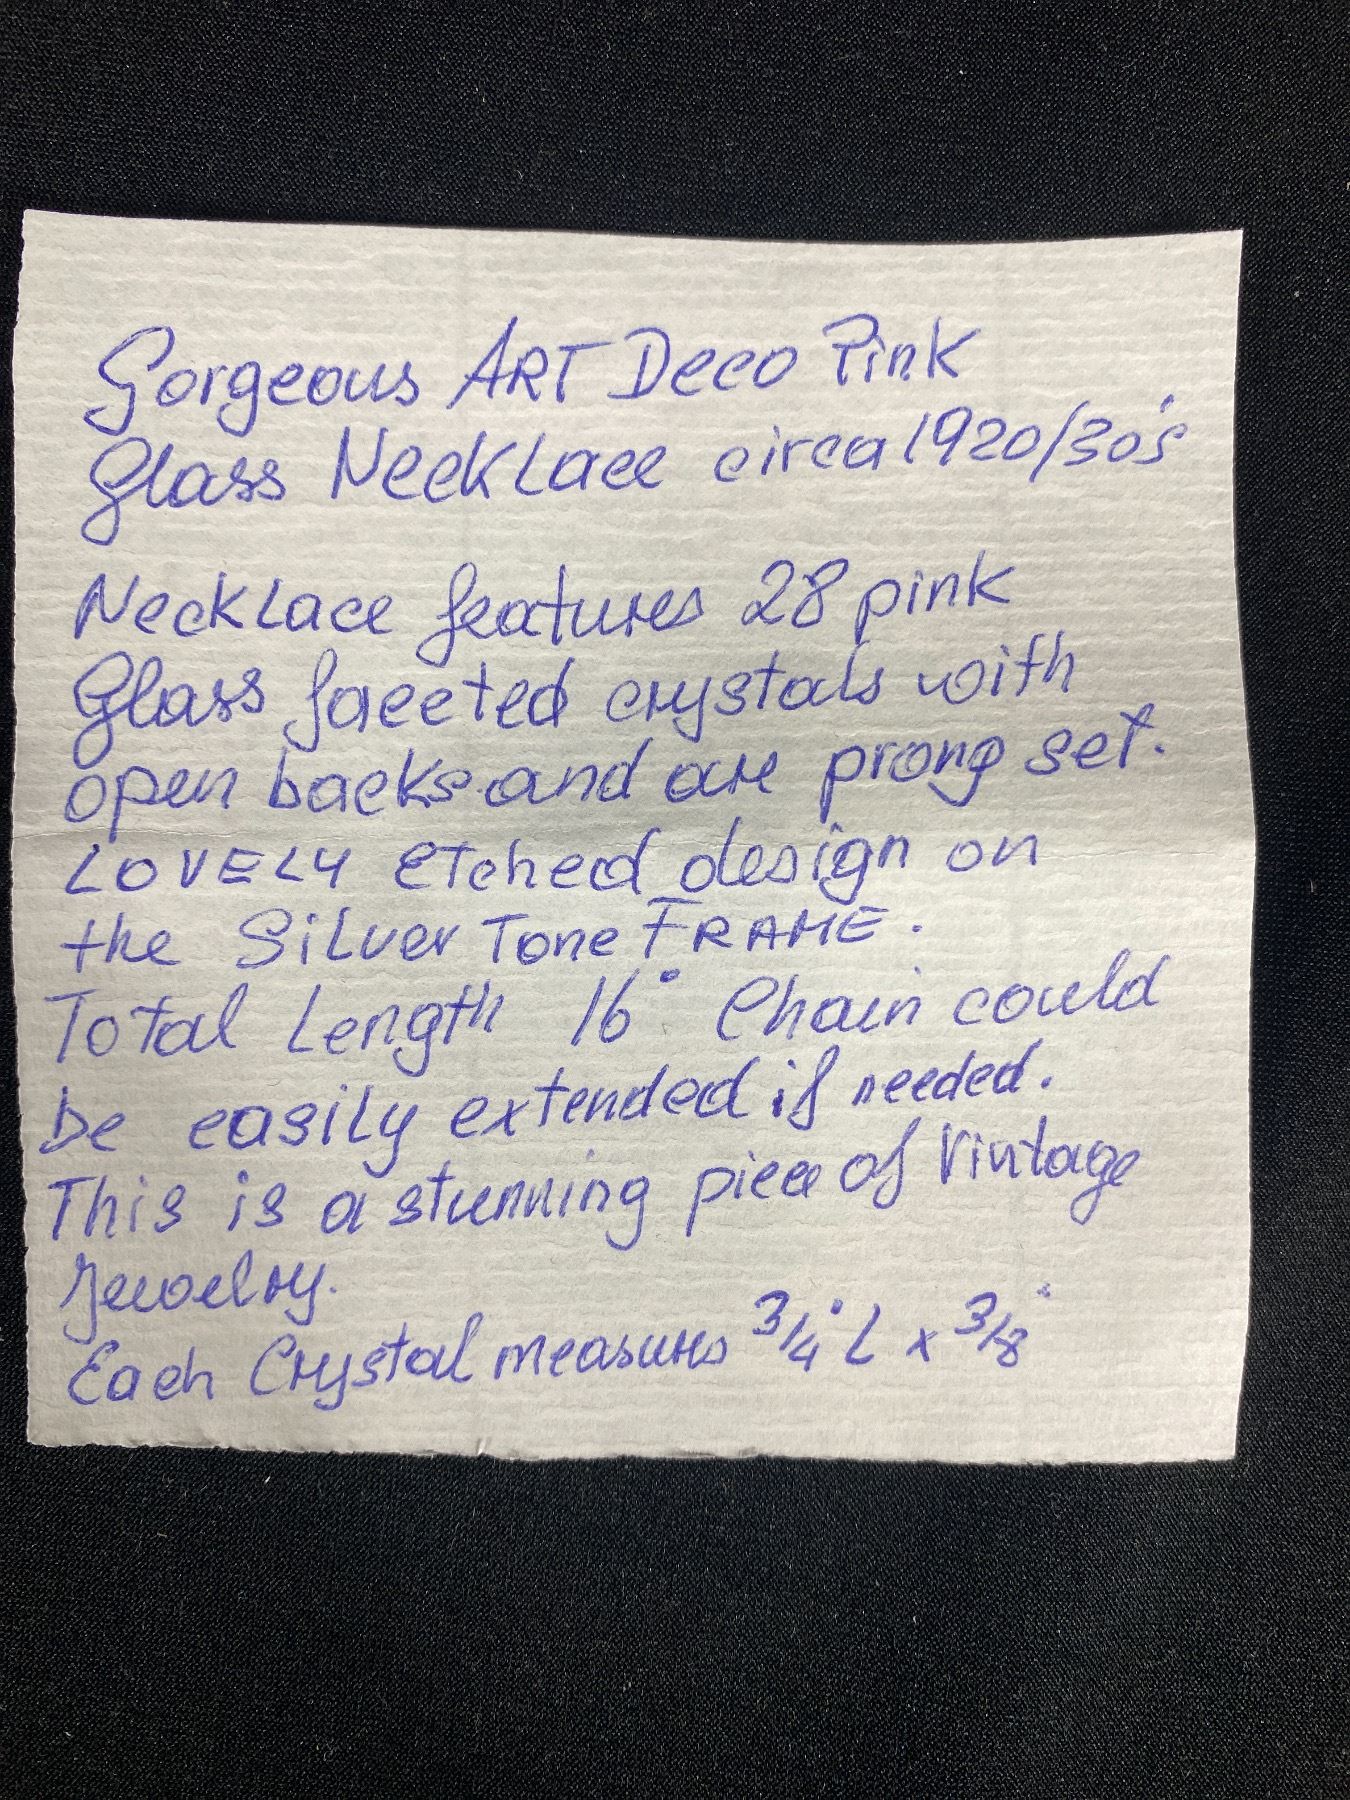 Gorgeous ART Deco Pink
Glass Necklace circa 1920/30's
Necklace features 28 pink
Glass faceted crystals with
open backs and are prong set.
LOVELY etched design on
the Silver Tone FRAME.
Total Length 16" Chain could
be easily extended if needed.
This is a stunning piece of Vintage
Jewelry.
Each Crystal measures 3/4" L x 3/8"